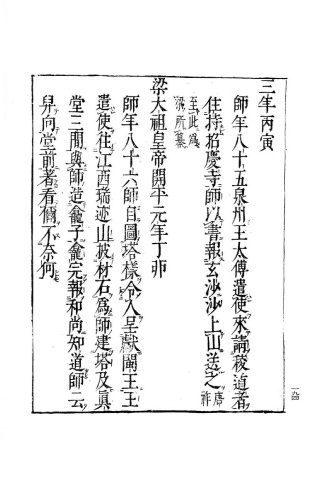 三年丙寅
師年八十五泉州王太傅遣使來請稜道者
住持招慶寺師以書報玄沙沙上山送之唐祚
至此爲梁所纂
梁大祖皇帝開平元年丁卯
師年八十六師自圖塔樣令人呈獻閩王王
遣使往江西瑞迹山披材石爲師建塔及眞
堂三間與師造龕子龕完報和尚知道師云
舁向堂前著看儞不奈何
一九四